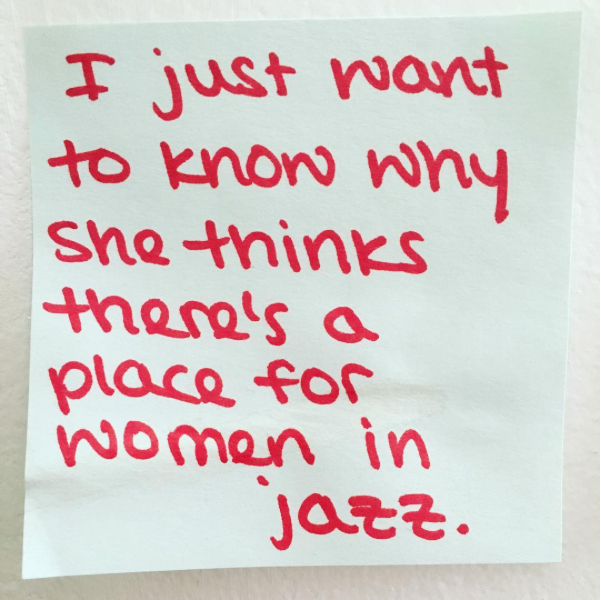 I just want
to know why
she thinks
there's a
place for
women in
jazz.